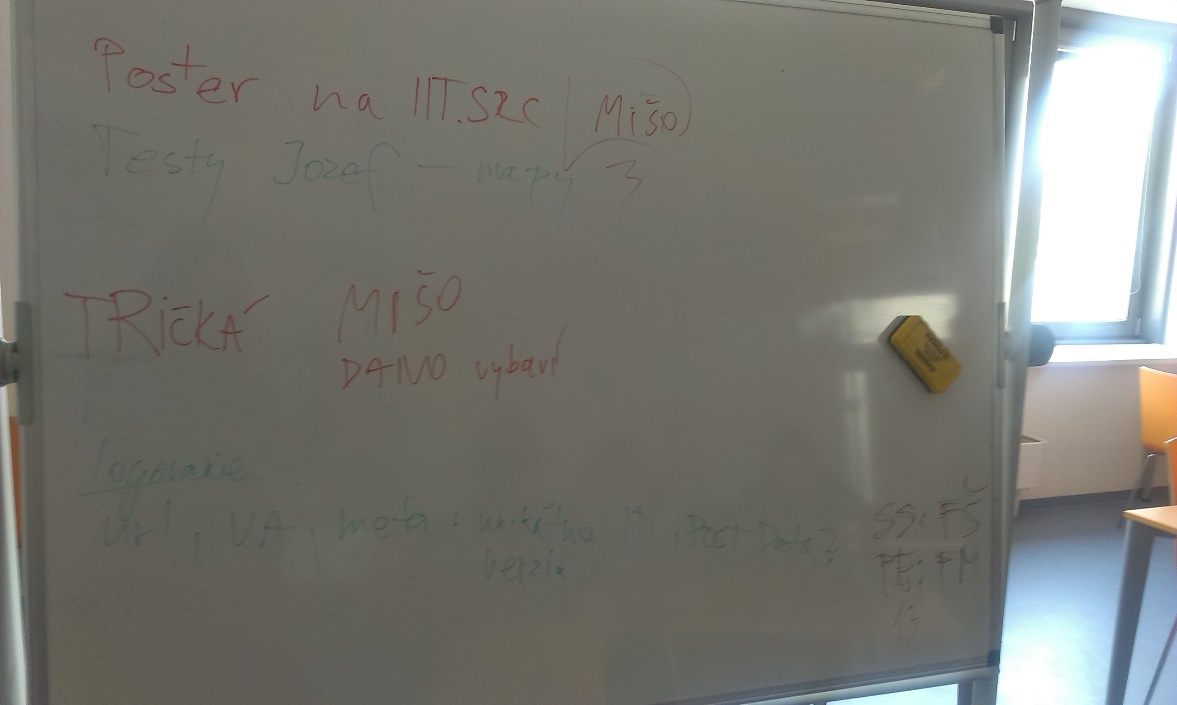 Poster na IIT.SRC Mišo
Testy Jozef — mapy 3
TRičKÁ MIŠO
DANO vybaví
logovanie
url, UA, meta: unikátne ID, Post Data?
verzia
SS: FŠ
PE: FM
13